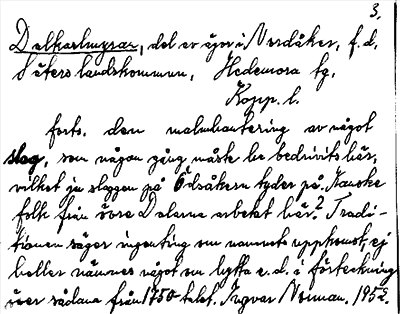 3.
Dalkarlmyrar, del av ägor i Nordåker, f.d.
Säters landskommun, Hedemora tg,
Kopp. l.
forts. den malmhantering av något
slag, som någon gång måste ha bedrivits här,
vilket ju slaggen på Ödsåkern tyder på. Kanske
folk från övre Dalarne arbetat här? Tradi-
tionen säger ingenting om namnets uppkomst, ej
heller nämnes något om hytta e.d. i förteckning
över sådana från 1750-talet. Ingvar Norman. 1952.